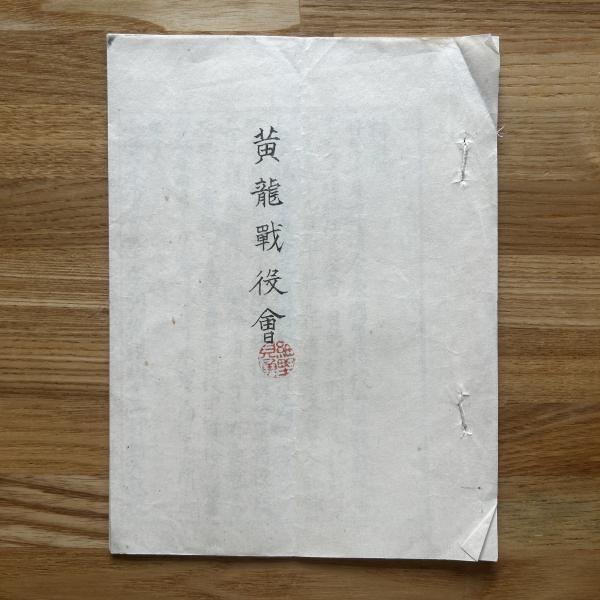 黄龍戰役會